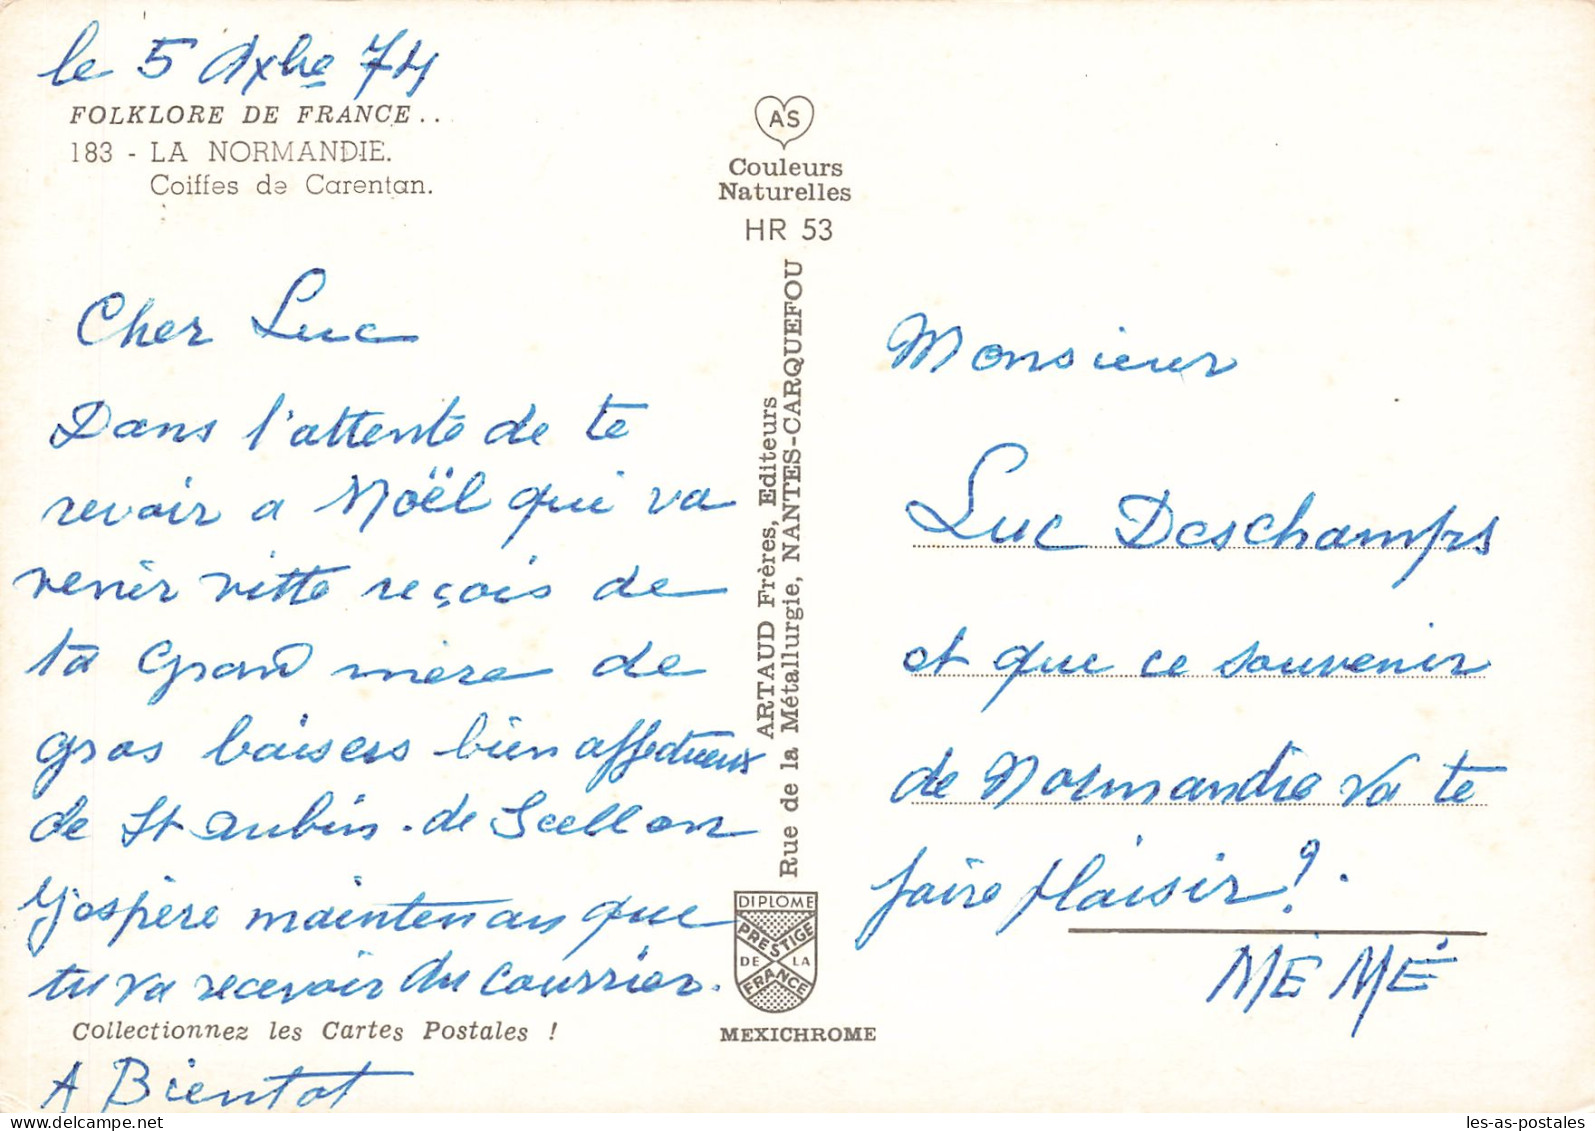 le 5 Dxbre 74
FOLKLORE DE FRANCE..
183 - LA NORMANDIE.
Coiffes de Carentan.
Cher Luc
Dans l'attente de te
revoir a Noël qui va
venir vitte reçois de
ta Grand mère de
gros baisers bien affectueux
de St Aubin. de Scellon
j'espère maintenan que
tu va recevoir du courrier.
Collectionnez les Cartes Postales !
A Bientot
AS
Couleurs
Naturelles
HR 53
ARTAUD Frères, Editeurs
Rue de la Métallurgie, NANTES-CARQUEFOU
DIPLOME
PRESTIGE
DE LA
FRANCE
MEXICHROME
Monsieur
Luc Deschamps
et que ce souvenir
de Normandie va te
faire plaisir!.
MÉMÉ
les-as-postales - delcampe.net